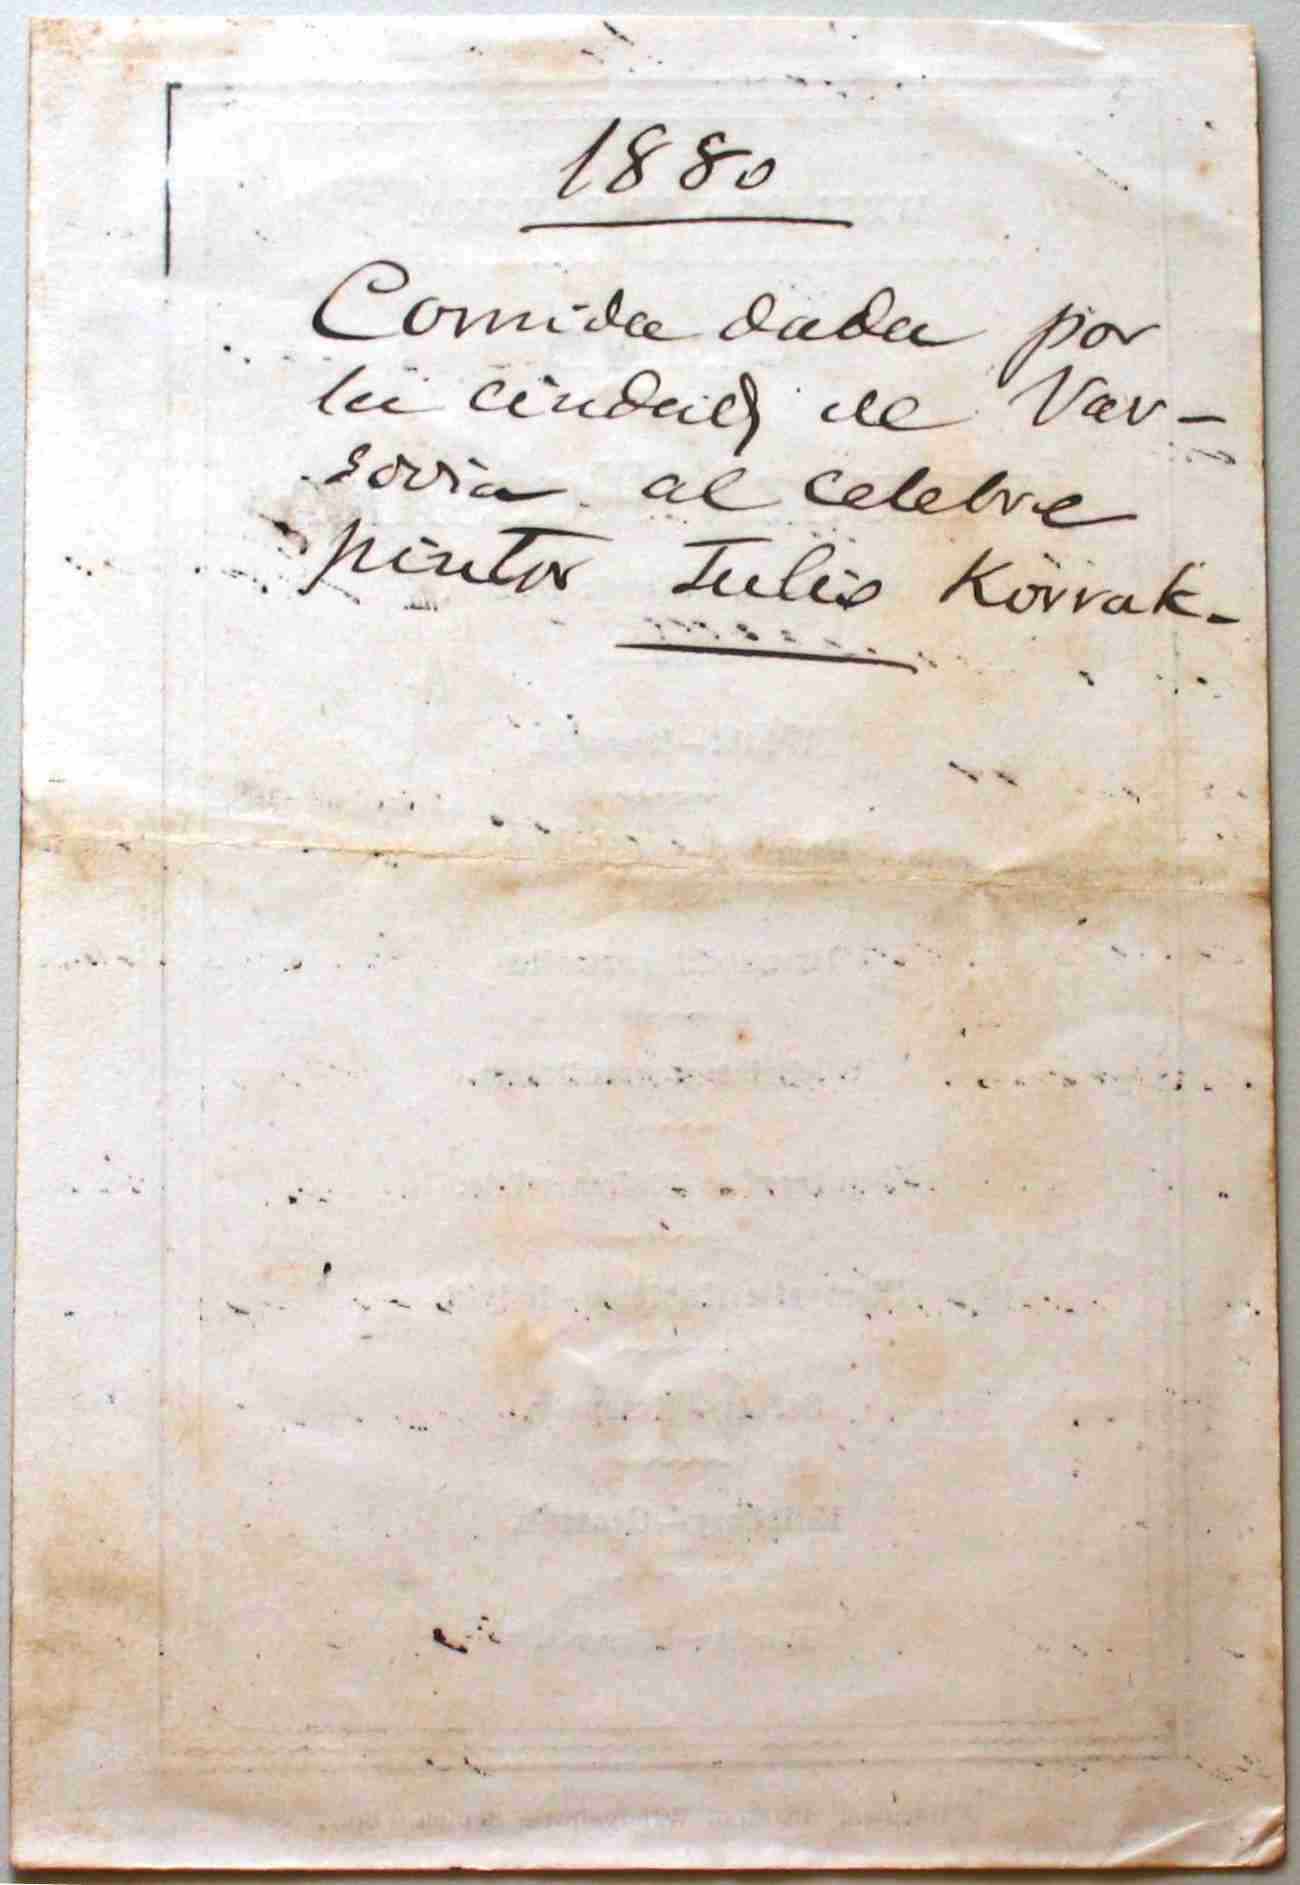 1880
Comida dada por
la ciudad de Var-
sovia al celebre
pintor Julio Korrak.